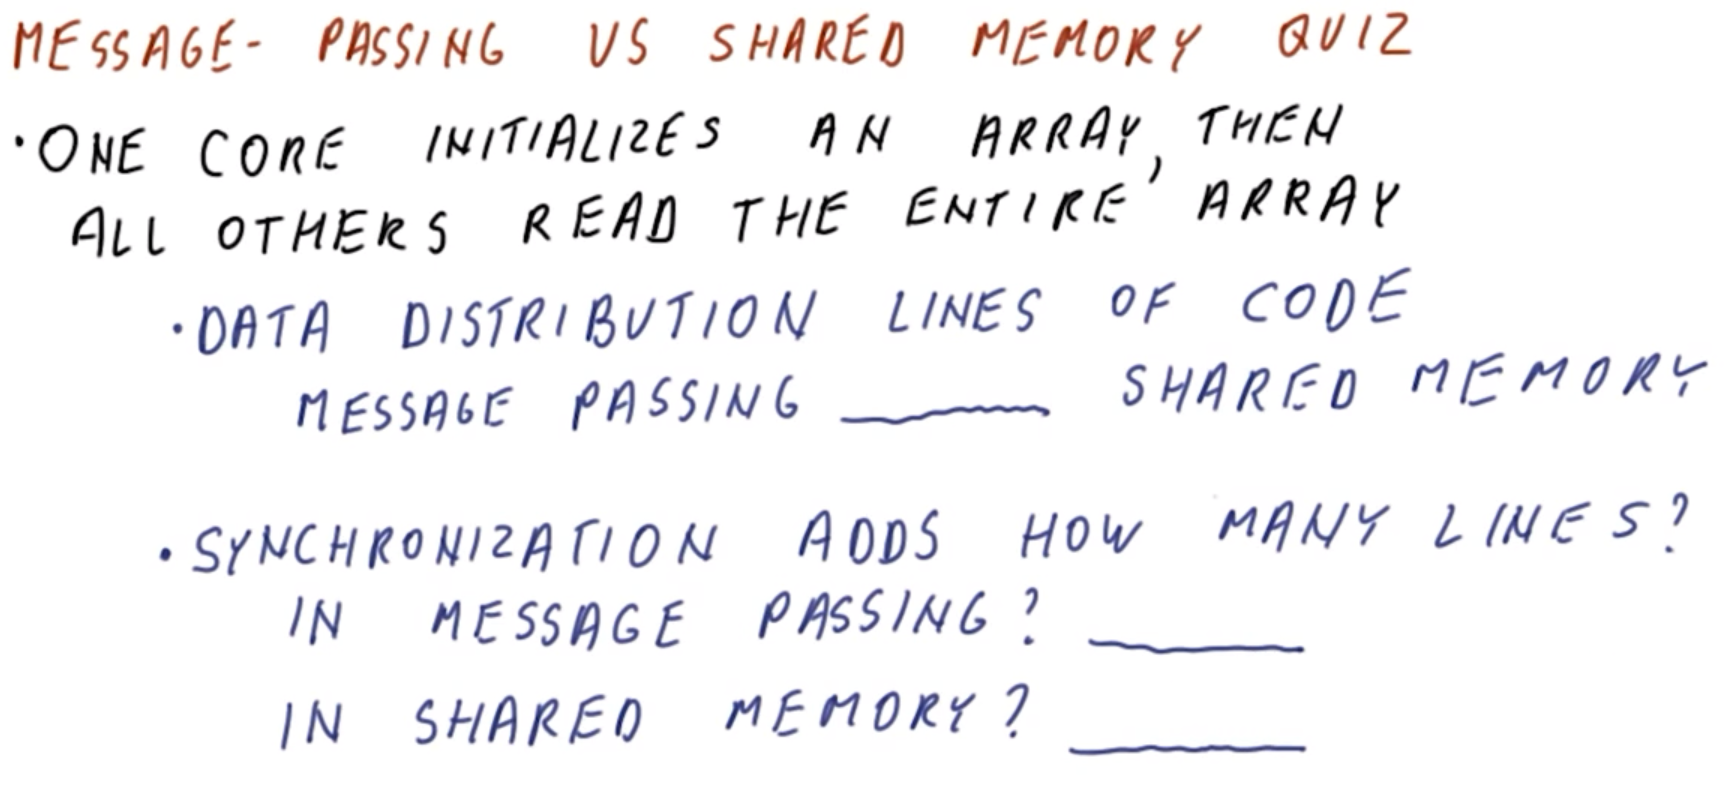 MESSAGE- PASSING VS SHARED MEMORY QUIZ
• ONE CORE INITIALIZES AN ARRAY, THEN
ALL OTHERS READ THE ENTIRE ARRAY
• DATA DISTRIBUTION LINES OF CODE
MESSAGE PASSING ______ SHARED MEMORY
• SYNCHRONIZATION ADDS HOW MANY LINES?
IN MESSAGE PASSING? ______
IN SHARED MEMORY? ______